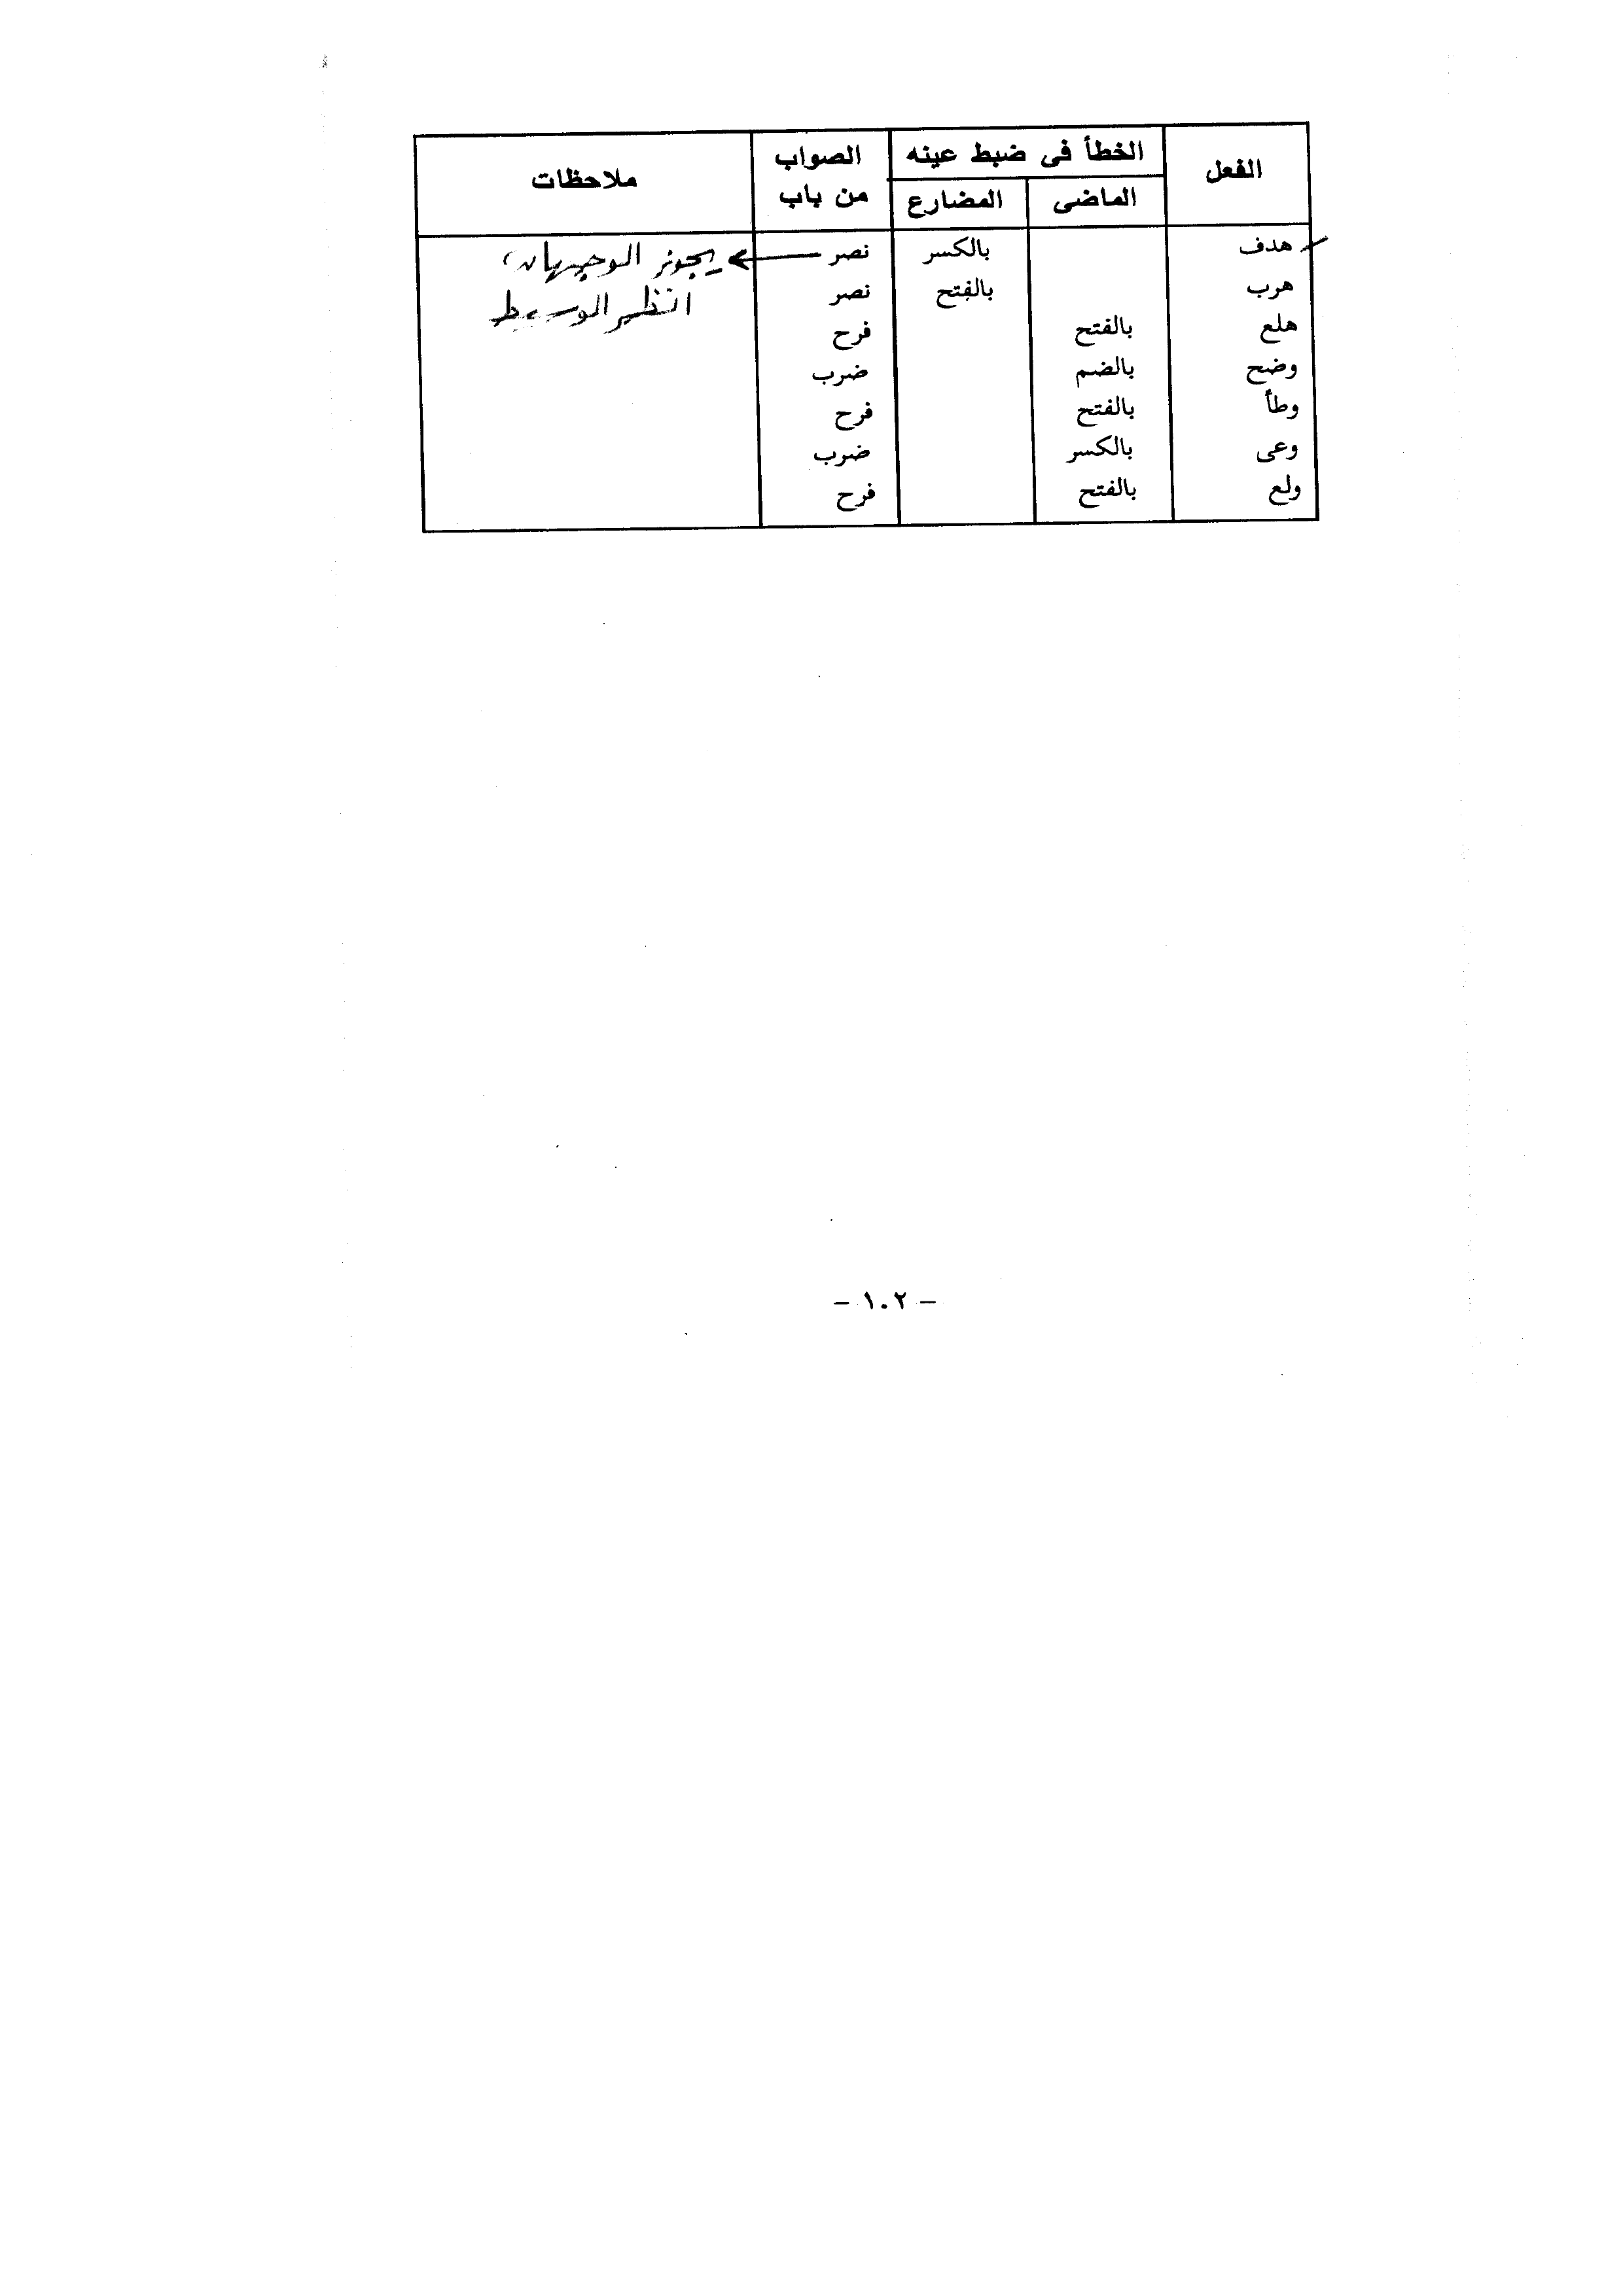 الفعل الخطأ فى ضبط عينه الصواب من باب ملاحظات
الماضى المضارع
هدف بالكسر نصر يجوز الوجهان،
هرب بالفتح نصر انظر الوسيط
هلع بالفتح فرح
وضح بالضم ضرب
وطأ بالفتح فرح
وعى بالكسر ضرب
ولع بالفتح فرح
– ١٠٢ –